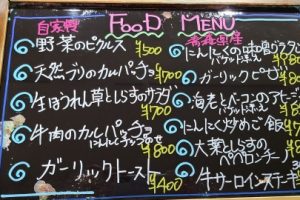 FOOD MENU
自家製
野菜のピクルス ¥500
天然ブリのカルパッチョ ¥700
生ほうれん草としらすのサラダ ¥700
牛肉のカルパッチョ
にんにく ¥800
ガーリックトースト ¥400
青森県産
にんにくの
バゲット
ガーリックピザ
海老とベーコンのアヒージョ
バゲット
にんにく炒めご飯
大葉としらすの
ペペロンチーノ
牛サーロインステーキ